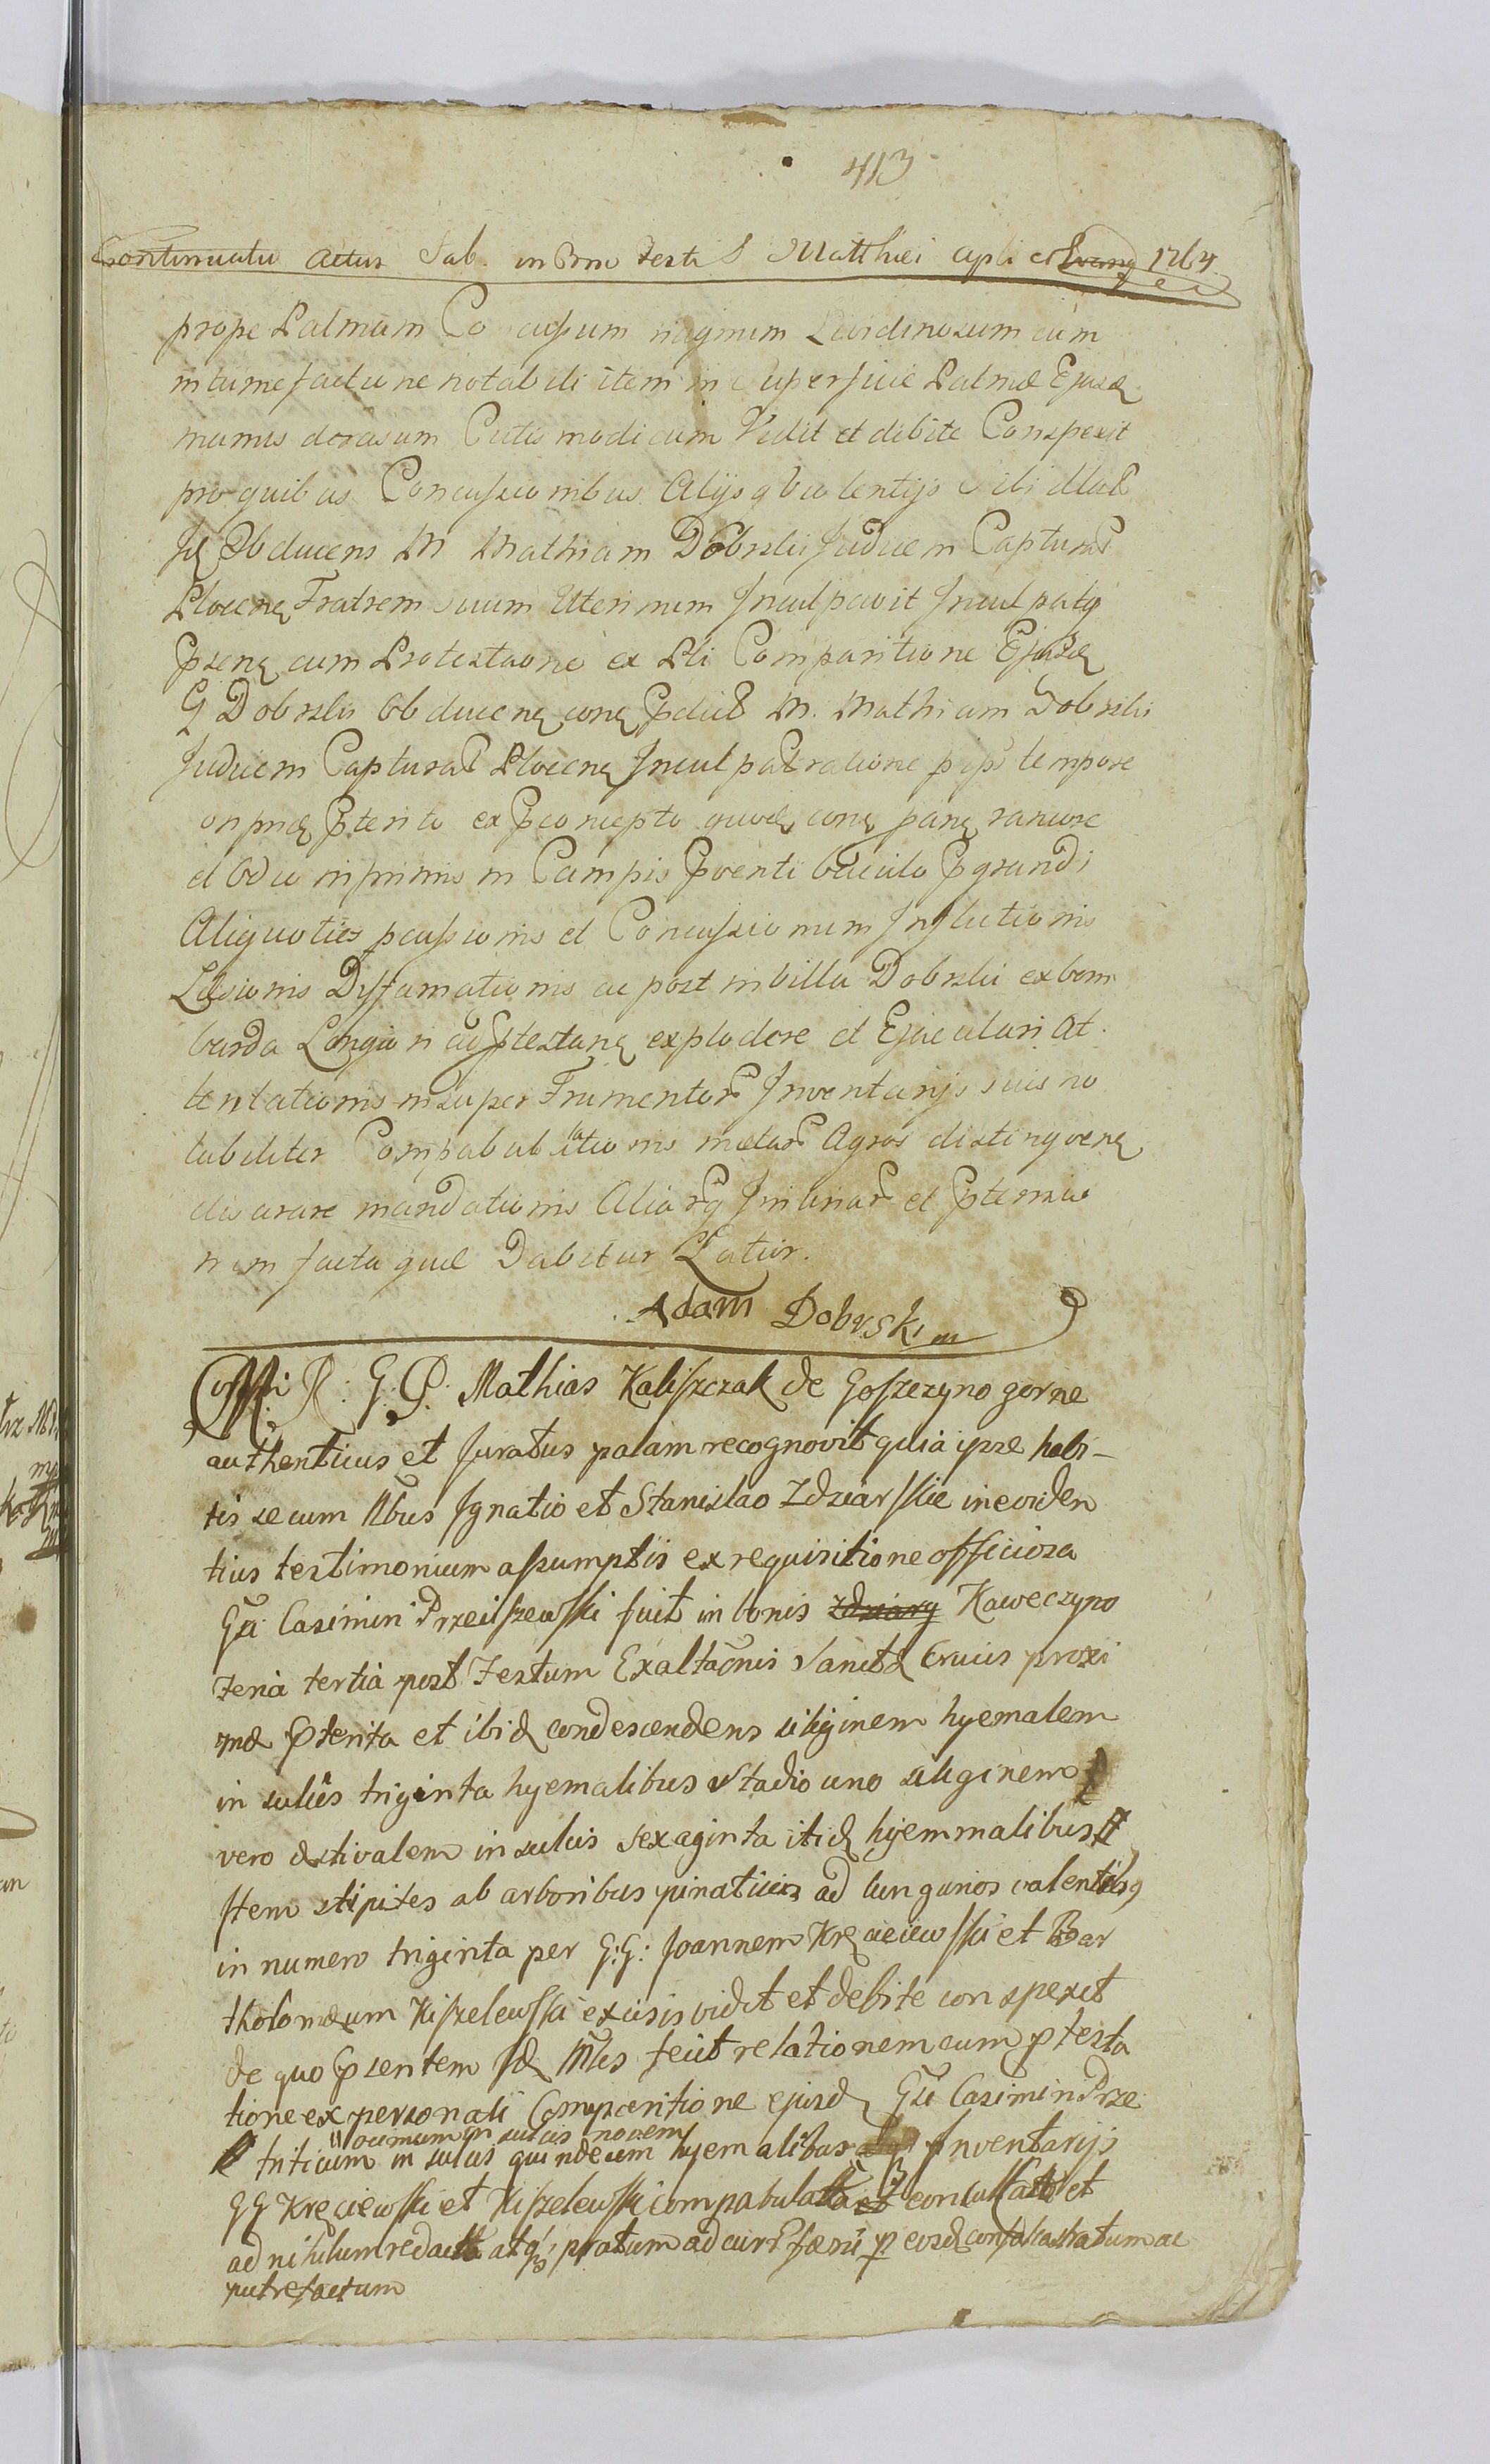 413
Continuatio Actus Sab. in Crm Festi S Matthiei Apli et Evang 1764
prope Palmam Co cussum magnum Livedinosum cum
intumefactione notabili item in superficie Palmæ Ejusd
manus dorasum Cutis modicum Vidit et debite Conspexit
pro quibus Concussionibus Alijsq violentijs sibi illat
Id Obducens M Mathiam Dobrski Judicem Capturat
Plocen Fratrem suum Uterinum Inculpavit Inculpatq
Psen cum Protestaone ex Pli Comparitione Ejusd
G Dobrski Obducen con Pdict M. Mathiam Dobrski
Judicem Capturat Plocen Inculpat ratione p ips tempore
in pns Pterito ex Pconcepto quod con pan rancore
et Odio inprimis in Campis Pventi baculo Pgrandi
Aliquoties pcussionis et Concussionum Inflictionis
Læsionis Diffamationis ac post in villa Dobrski ex bom
barda Longiori ad Ptestan explodere et Ejaculari At
tentationis insuper Frumentor Inventarijs suis no
tabiliter Compabulationis metar Agros distinguen
disarare mandationis Aliarq Injuriar et Ptensio
num facta quæ Dabitur Latior.
Adam Dobrski m
Coram Offi R: G: P: Mathias Kaliszczak de Goszczyno gorne
authenticus et Juratus palam recognovit quia ipse habi-
tis secum Nbus Ignatio et Stanislao Zdziarskie in eviden
tius testimonium assumptis ex requisitione officiosa
Gsi Casimiri Przeciszewski fuit in bonis Zdziary Kaweczyno
Feria tertia post Festum Exaltaonis Sanctæ Crucis proxi
mæ Pterita et ibid condescendens siliginem hyemalem
in sulcis triginta hyemalibus Stadio uno siliginem
vero æstivalem in sulcis sexaginta itid hyemmalibus #
Item stipites ab arboribus pinaticis ad lungarios valentibs
in numero triginta per G:G: Joannem Kręcieiewski et Bar
tholomæum Kiszelewski excisis vidit et debite conspexit
de quo Psentem Id Mlis fecit relationem cum ptesta
tione ex personali Comparitione ejusd Gsi Casimiri Prze
# triticum in sulcis quindecim hyemalibus Inventarijs
ocimum in sulcis novem
GG Kręciewski et Kiszelewski compabulata et conculcata et
ad nihilum redacta atq pratum ad curr fæni p eosd confalcastratum ac
putrefactum